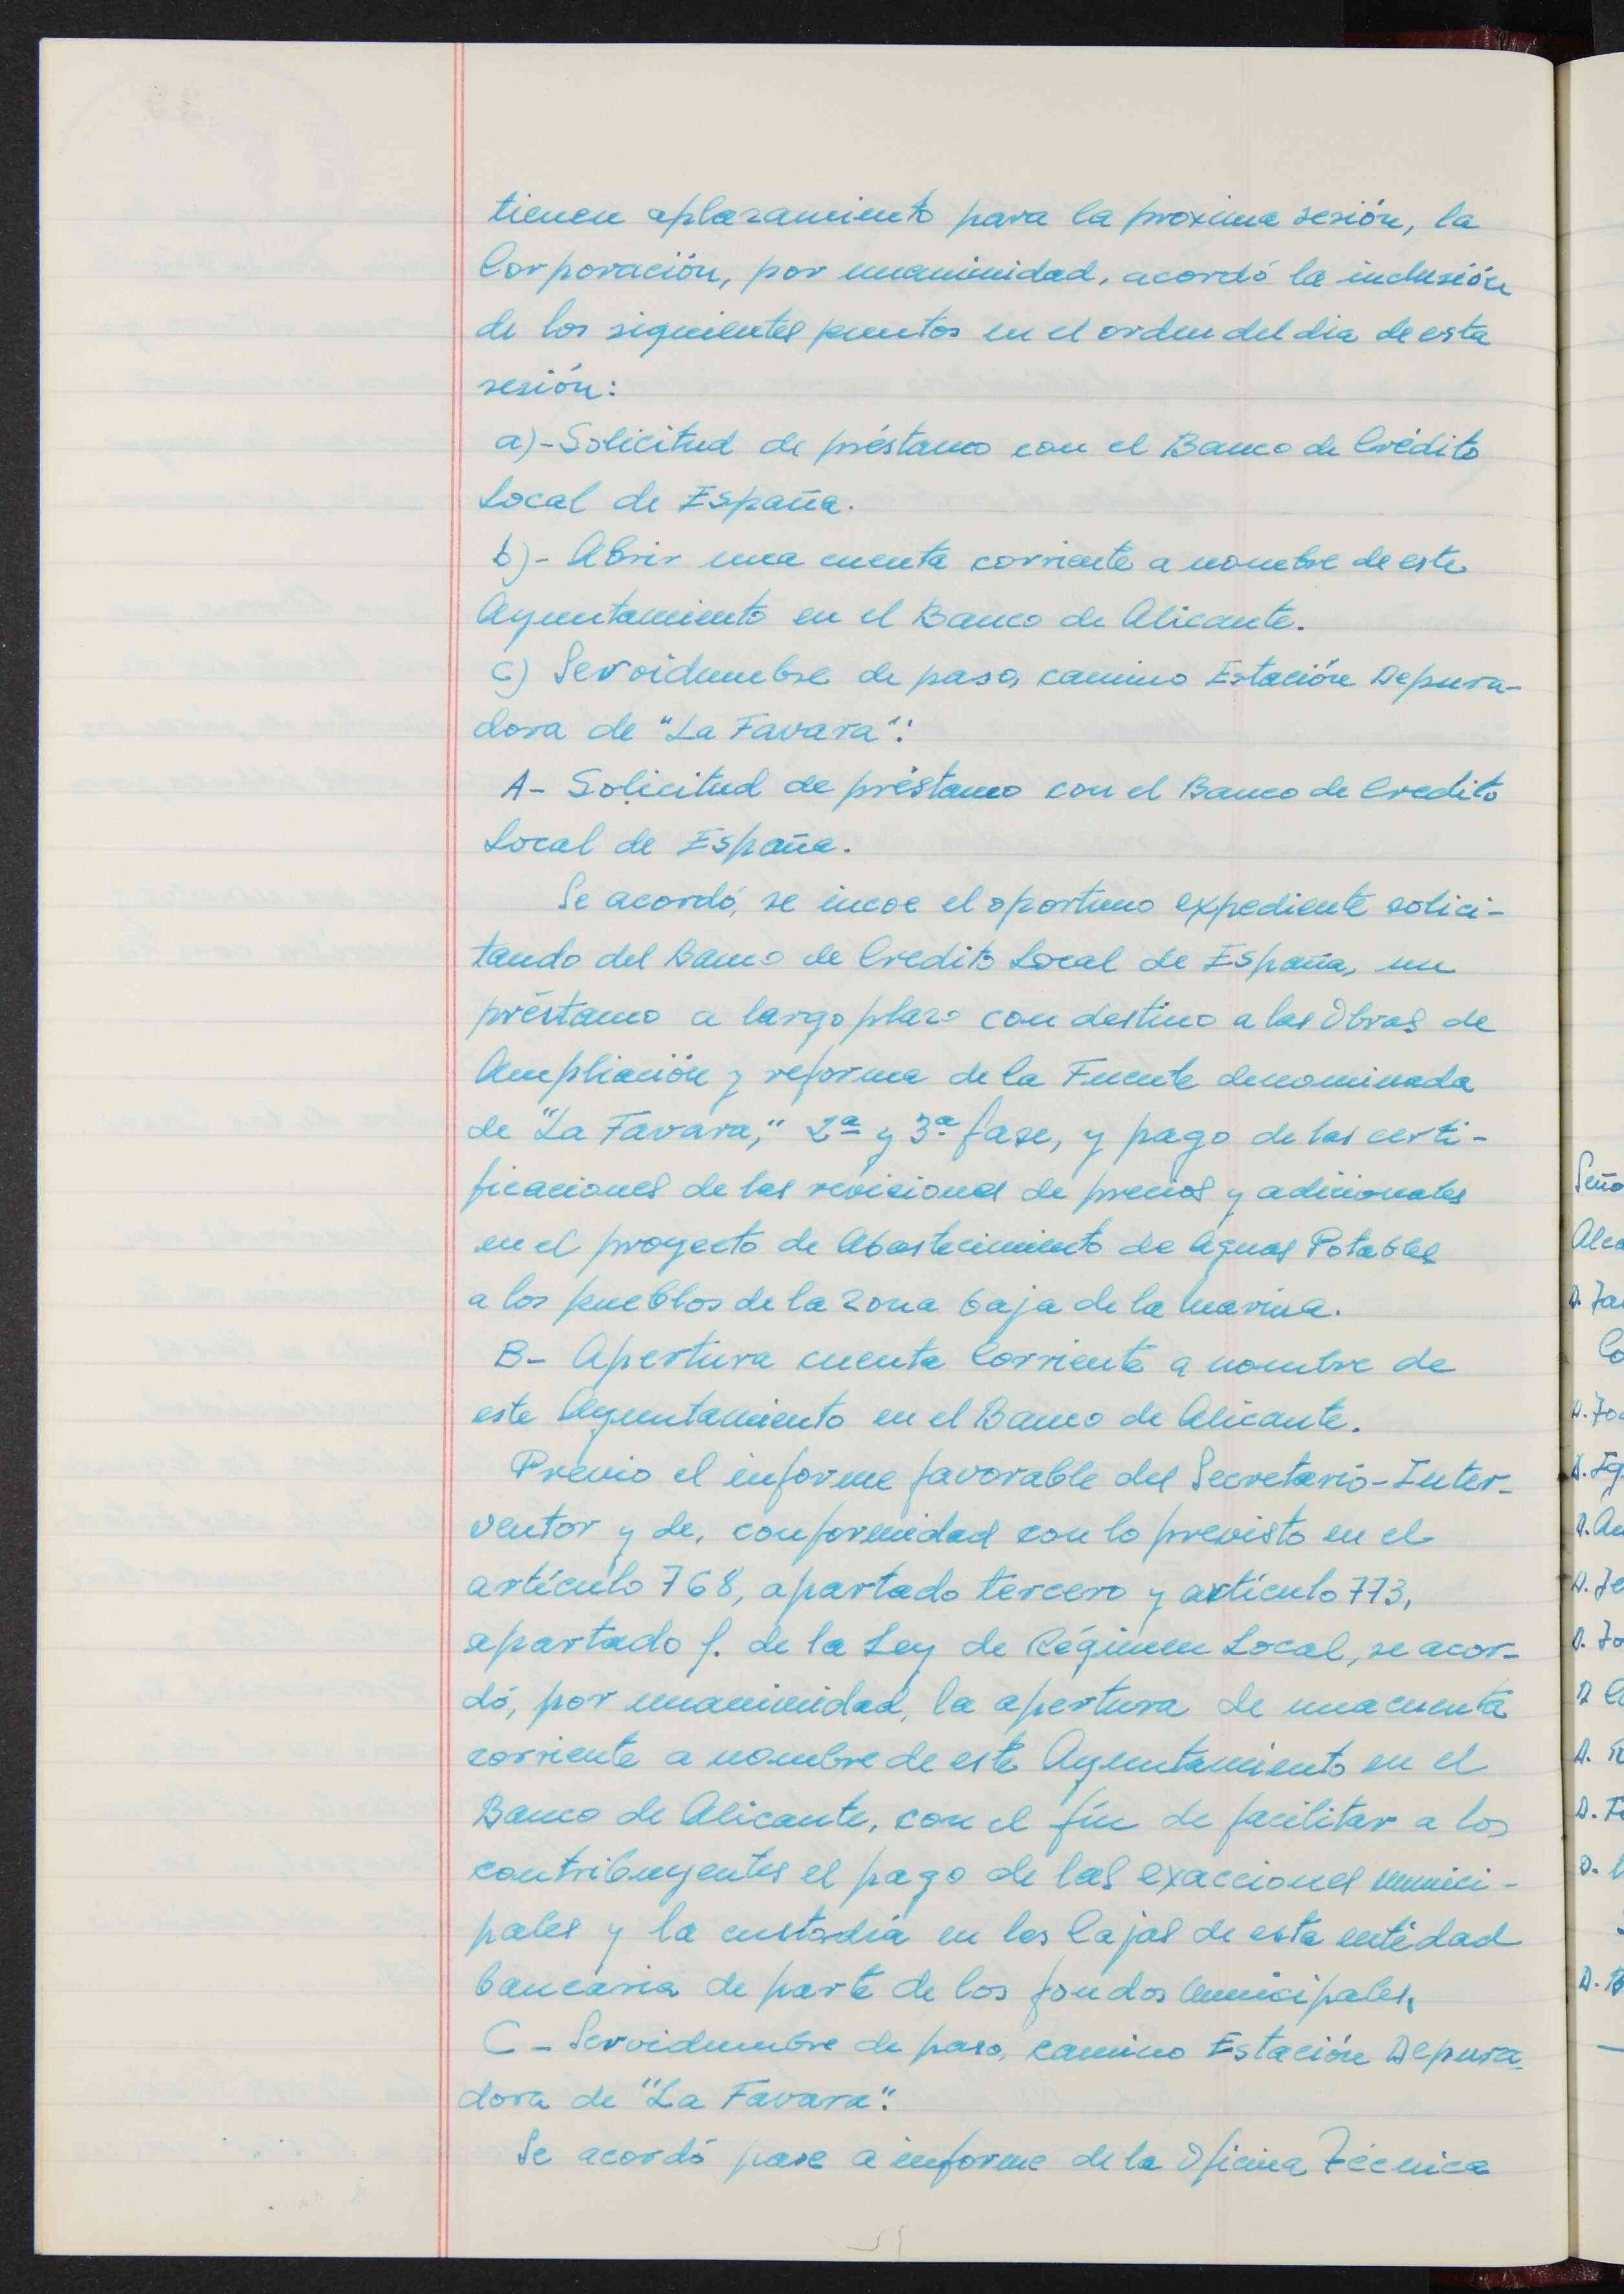 tienen aplazamiento para la proxima sesión, la
Corporación, por unanimidad, acordó la inclusión
de los siguientes puntos en el orden del dia de esta
sesión:
a)- Solicitud de préstamo con el Banco de Crédito
Local de España.
b)- Abrir una cuenta corriente a nombre de este
Ayuntamiento en el Banco de Alicante.
c) Servidumbre de paso, camino Estación Depura-
dora de "La Favara".
A- Solicitud de préstamo con el Banco de Credito
Local de España.
Se acordó, se incoe el oportuno expediente solici-
tando del Banco de Credito Local de España, un
préstamo a largo plazo con destino a las Obras de
Ampliación y reforma de la Fuente denominada
de "La Favara," 2ª y 3ª fase, y pago de las certi-
ficaciones de las revisiones de precios y adicionales
en el proyecto de Abastecimiento de Aguas Potables
a los pueblos de la zona baja de la Marina.
B- Apertura cuenta Corriente a nombre de
este Ayuntamiento en el Banco de Alicante.
Previo el informe favorable del Secretario-Inter-
ventor y de, conformidad con lo previsto en el
artículo 768, apartado tercero y artículo 773,
apartado f. de la Ley de Régimen Local, se acor-
dó, por unanimidad, la apertura de una cuenta
corriente a nombre de este Ayuntamiento en el
Banco de Alicante, con el fín de facilitar a los
contribuyentes el pago de las exacciones munici-
pales y la custodia en las Cajas de esta entidad
bancaria de parte de los fondos Municipales.
C- Servidumbre de paso, camino Estación Depura-
dora de "La Favara".
Se acordó pase a informe de la Oficina Técnica
Seño
Alca
Co